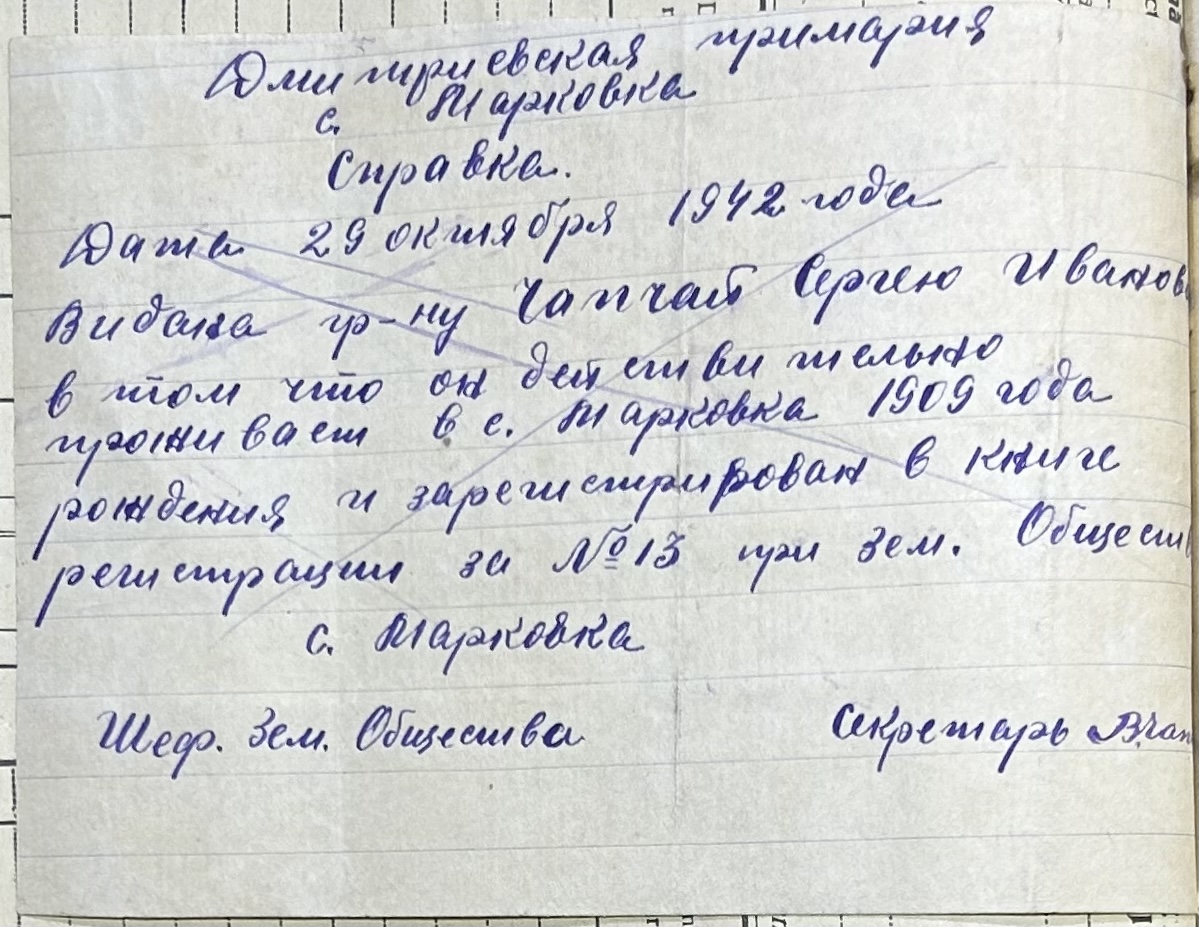 Дмитриевская примария
с. Марковка
Справка.
Дата 29 октября 1942 года
Видана гр-ну Чапчай Сергею Иванов
в том что он действительно
проживает в с. Марковка 1909 года
рождения и зарегистрирован в книге
регистрации за № 13 при зем. Обществ
с. Марковка
Шеф. Зем. Общества Секретарь